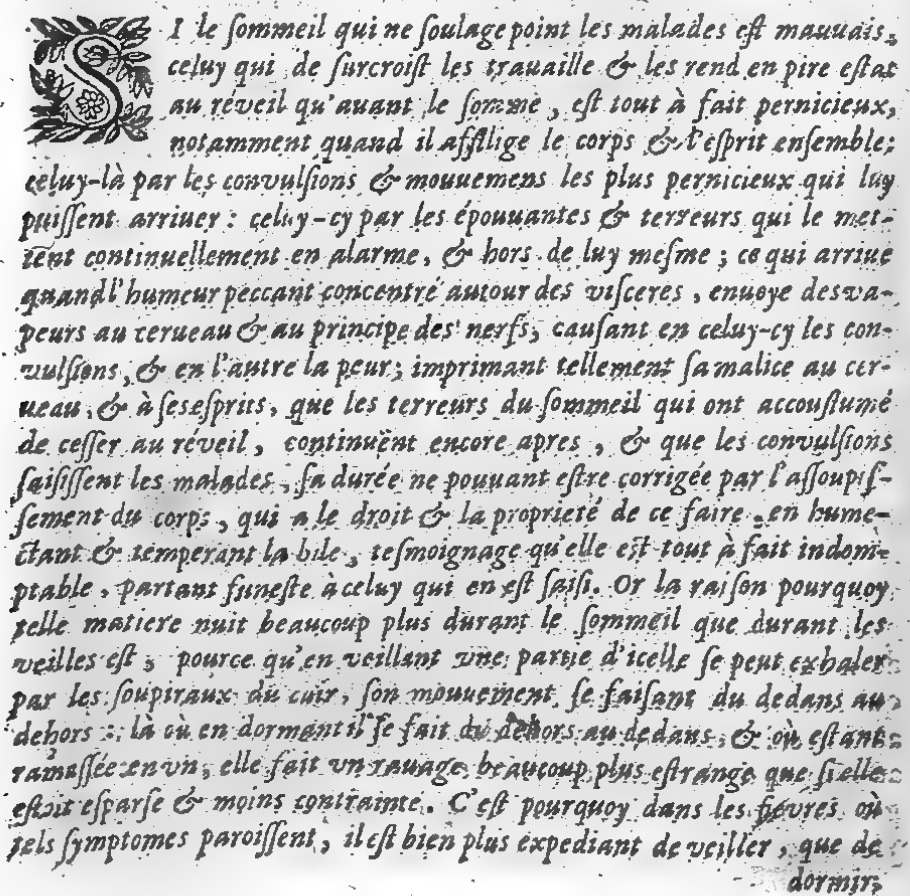 SI le ſommeil qui ne ſoulage point les malades eſt mauuais,
celuy qui de ſurcroiſt les trauaille & les rend en pire eſtat
au réveil qu'auant le ſomme, eſt tout à fait pernicieux,
notamment quand il afflige le corps & l'eſprit enſemble;
celuy-là par les convulſions & mouuemens les plus pernicieux qui luy
puiſſent arriuer : celuy-cy par les épouuantes & terreurs qui le met-
tent continuellement en alarme, & hors de luy meſme ; ce qui arriue
quand l'humeur peccant concentré autour des viſceres , enuoye des va-
peurs au cerueau & au principe des nerfs, cauſant en celuy-cy les con-
vulſions, & en l'autre la peur; imprimant tellement ſa malice au cer-
ueau, & à ſes eſprits, que les terreurs du ſommeil qui ont accouſtumé
de ceſſer au réveil , continuënt encore apres , & que les convulſions
ſaiſiſſent les malades, ſa durée ne pouuant eſtre corrigée par l'aſſoupiſ-
ſement du corps, qui a le droit & la proprieté de ce faire, en hume-
ctant & temperant la bile, teſmoignage qu'elle eſt tout à fait indom-
ptable, partant funeſte à celuy qui en eſt ſaiſi. Or la raiſon pourquoy
telle matiere nuit beaucoup plus durant le ſommeil que durant les
veilles eſt, pource qu'en veillant vne partie d'icelle ſe peut exhaler
par les ſoupiraux du cuir, ſon mouuement ſe faiſant du dedans au
dehors : là où en dormant il ſe fait du dehors au dedans, & où eſtant
ramaſſée en vn, elle fait vn rauage beaucoup plus eſtrange que ſi elle
eſtoit eſparſe & moins contrainte. C'eſt pourquoy dans les fiévres où
tels ſymptomes paroiſſent, il eſt bien plus expediant de veiller, que de
dormir;